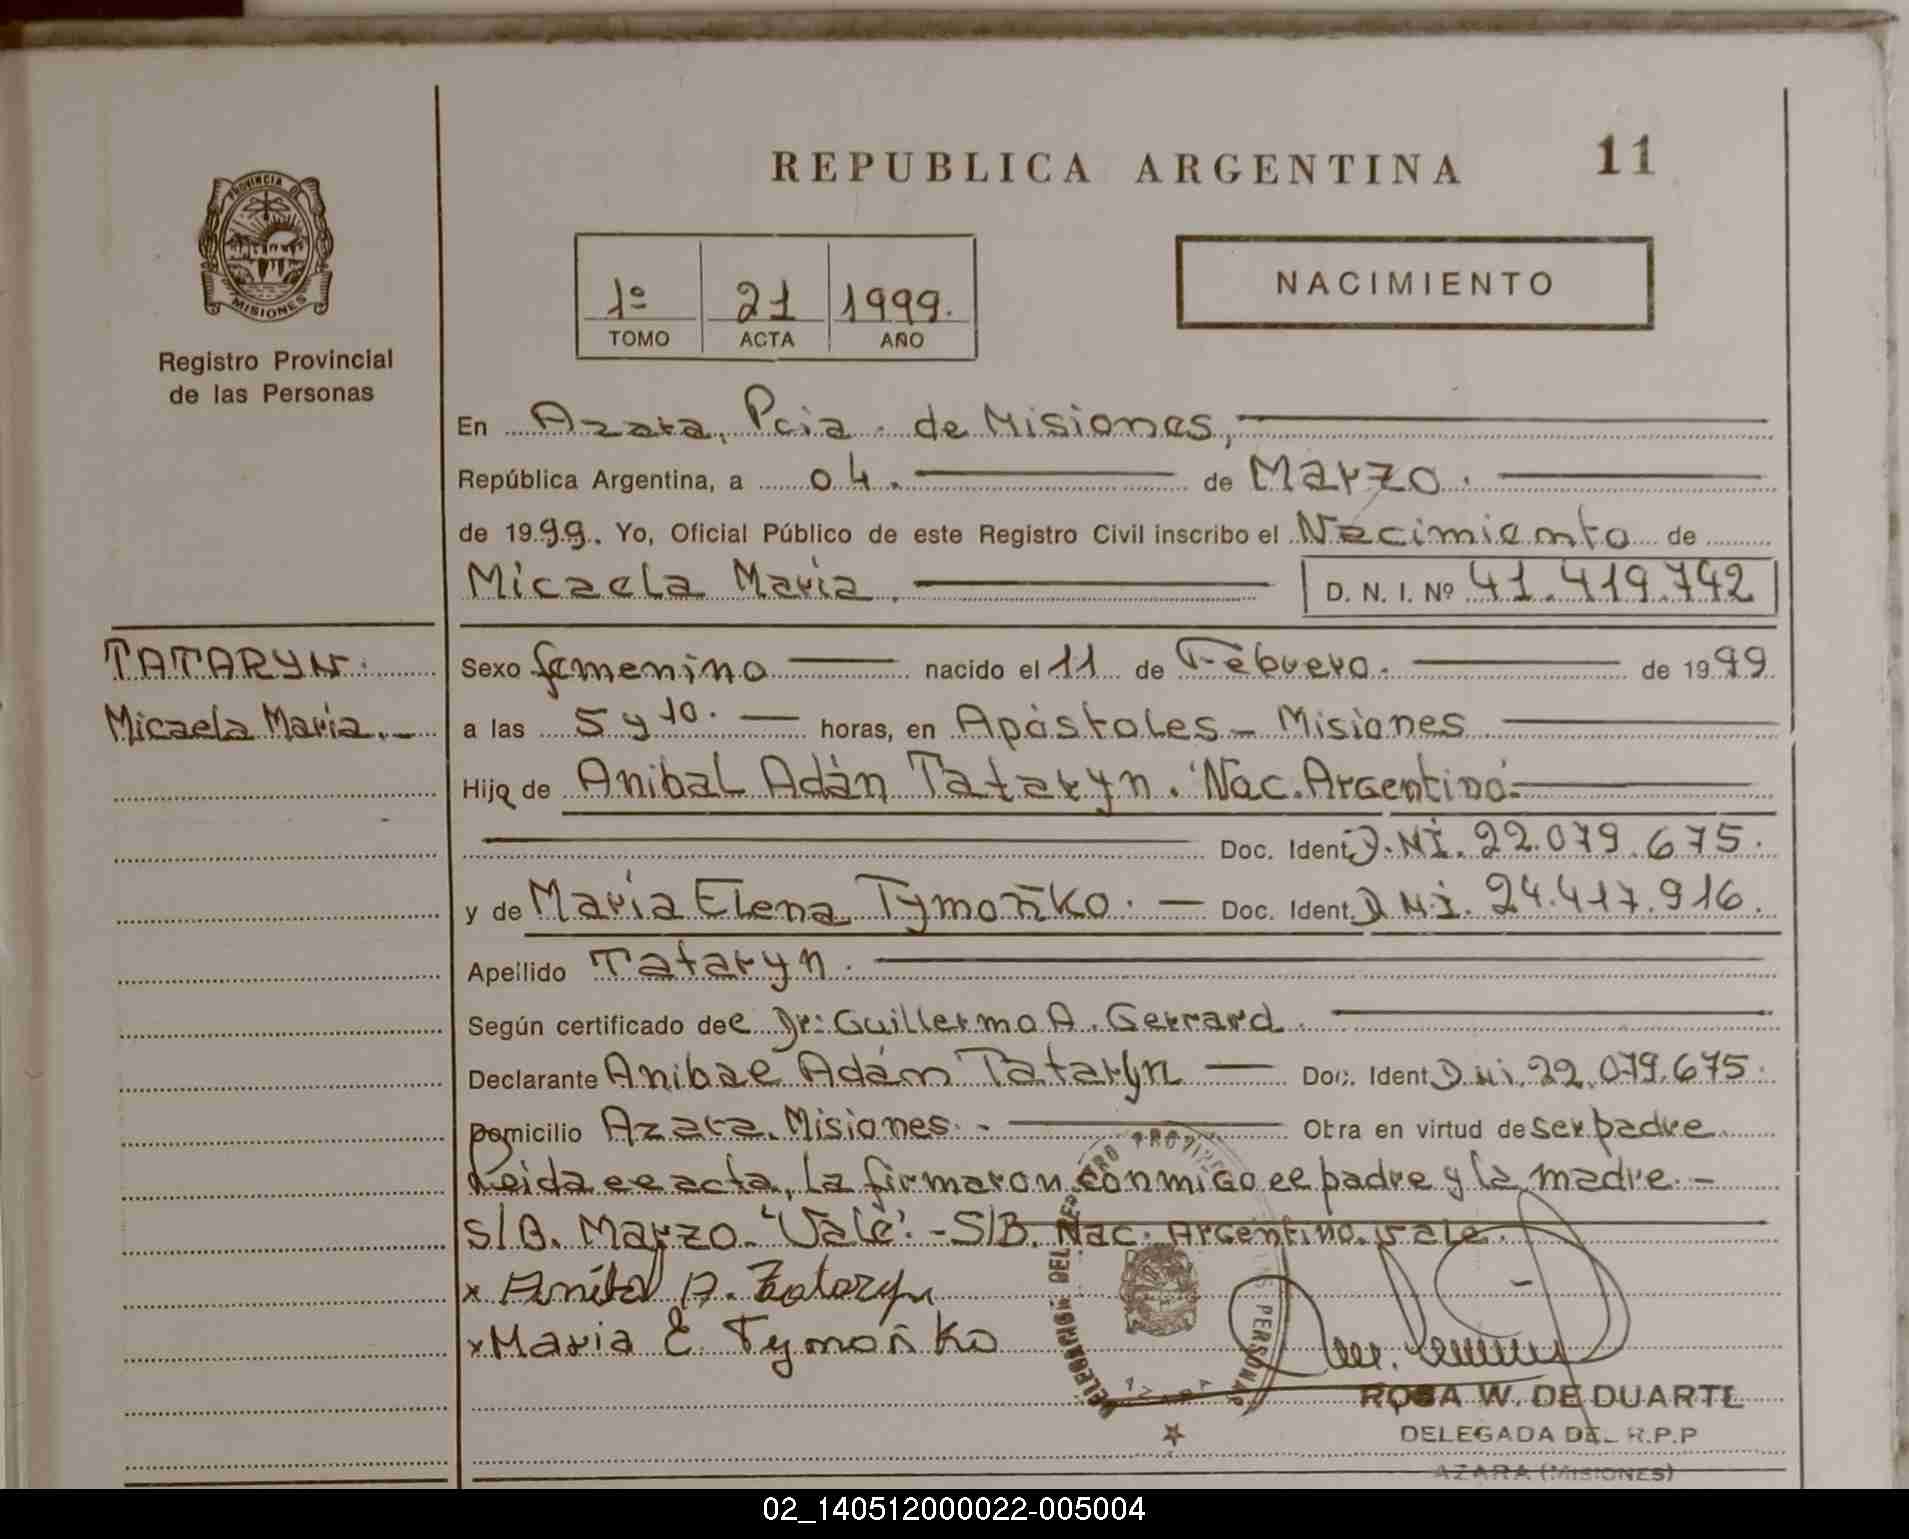 REPUBLICA ARGENTINA
11
PROVINCIA DE
MISIONES
Registro Provincial
de las Personas
1º 21 1999.
TOMO ACTA AÑO
NACIMIENTO
En Azara, Pcia. de Misiones,
República Argentina, a 04. de Marzo.
de 1999. Yo, Oficial Público de este Registro Civil inscribo el Nacimiento de
Micaela María. D. N. I. Nº 41.419.742
TATARYN.
Micaela María.-
Sexo femenino nacido el 11 de Febrero. de 1999
a las 5 y 10. horas, en Apóstoles - Misiones
Hija de Anibal Adán Tataryn. 'Nac. Argentino'.
Doc. Ident D.N.I. 22.079.675.
y de María Elena Tymoñko. Doc. Ident. D.N.I. 24.417.916.
Apellido Tataryn.
Según certificado del Dr: Guillermo A. Gerrard.
Declarante Anibal Adán Tataryn Doc. Ident D.N.I. 22.079.675.
Domicilio Azara. Misiones. - Obra en virtud de ser padre
Leida el acta, la firmaron conmigo el padre y la madre. -
S/B. Marzo. 'Vale'. - S/B. Nac. Argentino. vale.
x A. Tataryn
x Maria E. Tymoñko
AZARA
ROSA W. DE DUARTE
DELEGADA DEL R.P.P
AZARA (MISIONES)
02_140512000022-005004